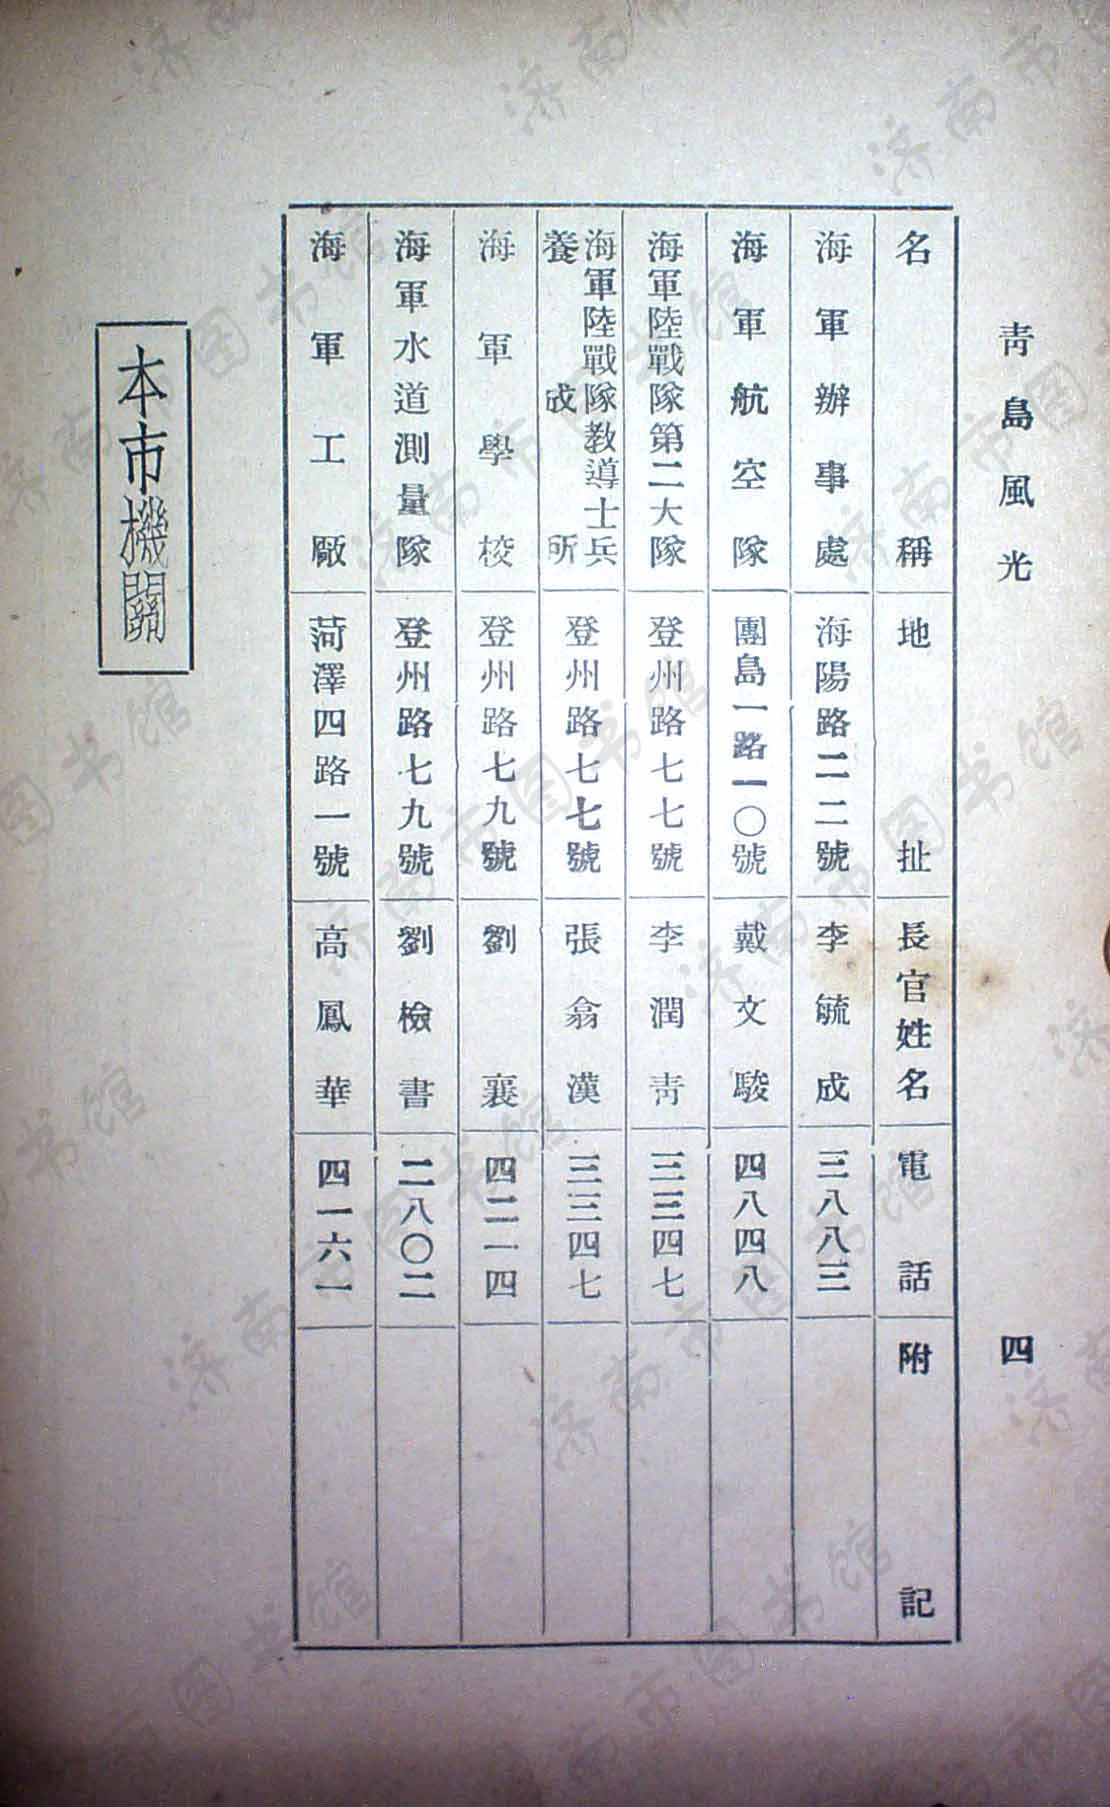 青島風光
四
名稱 地址 長官姓名 電話 附記
海軍辦事處 海陽路二二號 李毓成 三八八三
海軍航空隊 團島一路一〇號 戴文駿 四八四八
海軍陸戰隊第二大隊 登州路七七號 李潤青 三三四七
海軍陸戰隊教導士兵
養成所 登州路七七號 張翕漢 三三四七
海軍學校 登州路七九號 劉襄 四二一四
海軍水道測量隊 登州路七九號 劉檢書 二八〇二
海軍工廠 菏澤四路一號 高鳳華 四一六一
本市機關
济南市图书馆